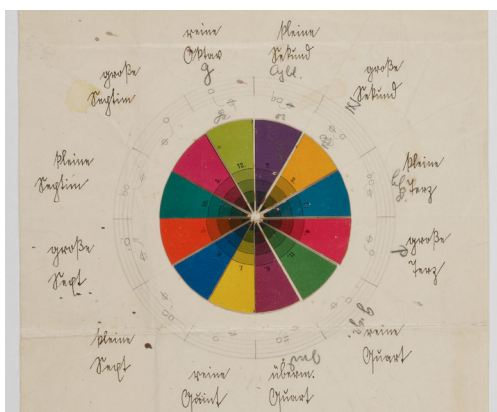 reine
Oktav
g
kleine
Sekund
große
Sekund
kleine
Terz
große
Terz
reine
Quart
überm.
Quart
reine
Quint
kleine
Sext
große
Sext
kleine
Septim
große
Septim
12
7